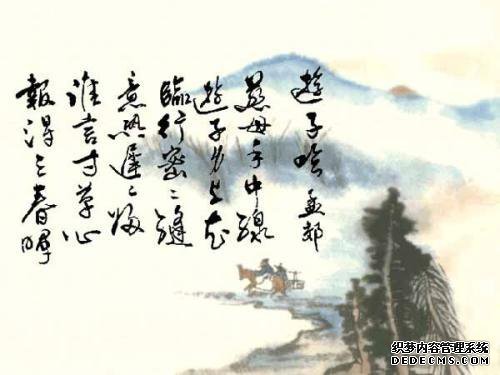 遊子吟 孟郊
慈母手中線
遊子身上衣
臨行密密縫
意恐遲遲歸
誰言寸草心
報得三春暉
织梦内容管理系统
DEDECMS.COM